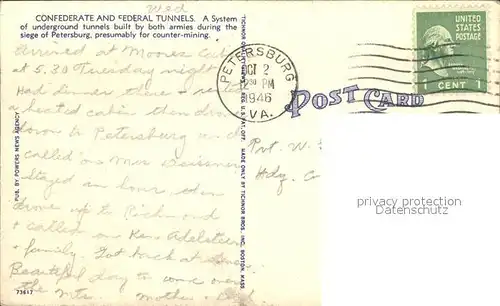 Wed
CONFEDERATE AND FEDERAL TUNNELS. A System
of underground tunnels built by both armies during the
siege of Petersburg, presumably for counter-mining.
Arrived at Moores
at 5.30 Tuesday night
Had dinner there &
a heated cabin then drove
down to Petersburg and
called on Mrs
Stayed an hour then
drove up to Richmond
& called on Ken Adelstein
& family. Got back at
Beautiful day to come over
the mts. Mother &
73617
PUB. BY POWERS NEWS AGENCY
MADE ONLY BY TICHNOR BROS. INC., BOSTON, MASS.
PETERSBURG
OCT 2
PM
1946
VA.
UNITED
STATES
POSTAGE
1 CENT 1
POST CARD
Pvt. W.
Hdq. C
privacy protection
Datenschutz